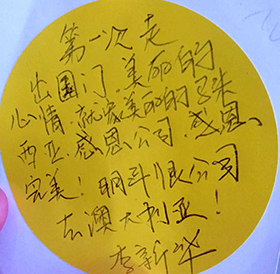 第一次走
出国门.美丽的
心情.就像美丽的马来
西亚.感恩公司.感恩
完美!明年跟公司
去澳大利亚!
李新华